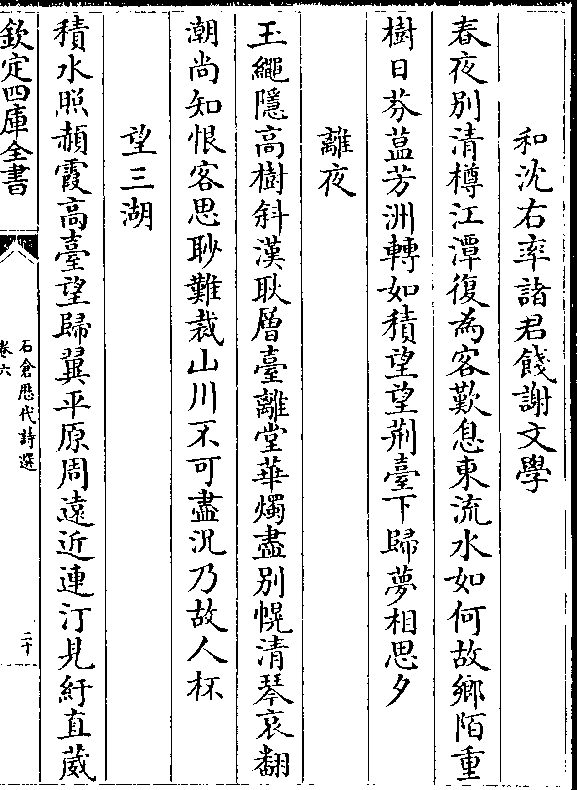 和沈右率諸君餞謝文學
春夜别清樽江潭復為客歎息東流水如何故鄉陌重
樹日芬蒀芳洲轉如積望望荆臺下歸夢相思夕
離夜
玉繩隱高樹斜漢耿層臺離堂華燭盡别幌清琴哀翻
潮尚知恨客思眇難裁山川不可盡況乃故人杯
望三湖
積水照赬霞高臺望歸翼平原周遠近連汀見紆直葳
欽定四庫全書
石倉歷代詩選
卷六
二十